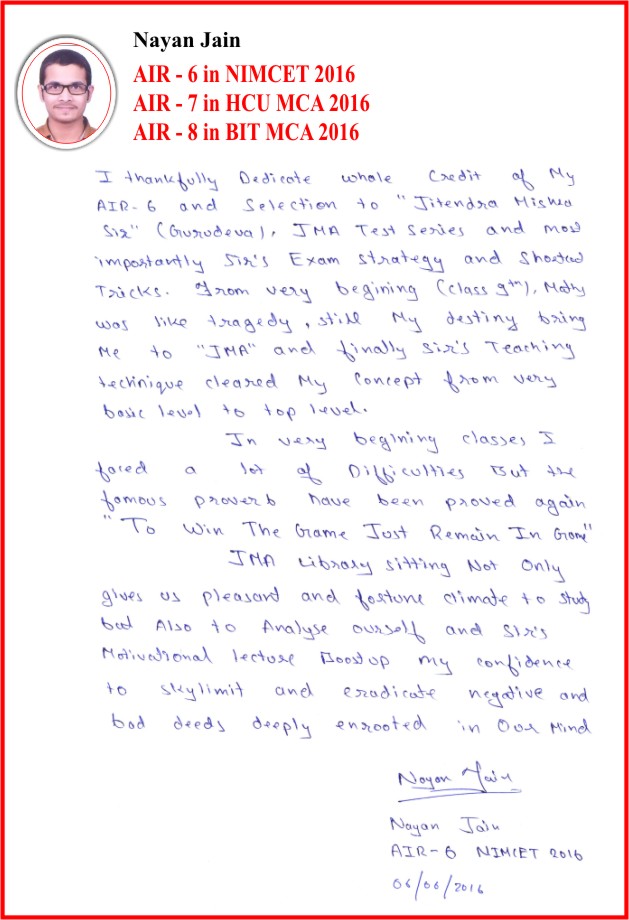 Nayan Jain
AIR - 6 in NIMCET 2016
AIR - 7 in HCU MCA 2016
AIR - 8 in BIT MCA 2016
I thankfully Dedicate whole Credit of My
AIR-6 and Selection to "Jitendra Mishra
Sir" (Gurudeva), JMA Test Series and most
importantly Sir's Exam strategy and Shortcut
Tricks. From very begining (class 9th), Maths
was like tragedy, still My destiny bring
Me to "JMA" and finally Sir's Teaching
technique cleared My Concept from very
basic level to top level.
In very begining classes I
faced a lot of Difficulties But the
famous proverb have been proved again
"To Win The Game Just Remain In Game"
JMA Library sitting Not Only
gives us pleasant and fortune climate to study
but Also to Analyse ourself and Sir's
Motivational lecture Boostup my confidence
to skylimit and eradicate negative and
bad deeds deeply enrooted in Our Mind
Nayan Jain
Nayan Jain
AIR-6 NIMCET 2016
06/06/2016